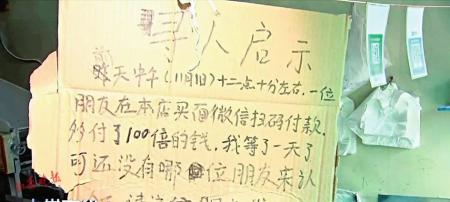 寻人启示
昨天中午(11月1日)十二点十分左右,一位
朋友在本店买面微信扫码付款,
多付了100倍的钱,我等了一天了
可还没有哪位朋友来认